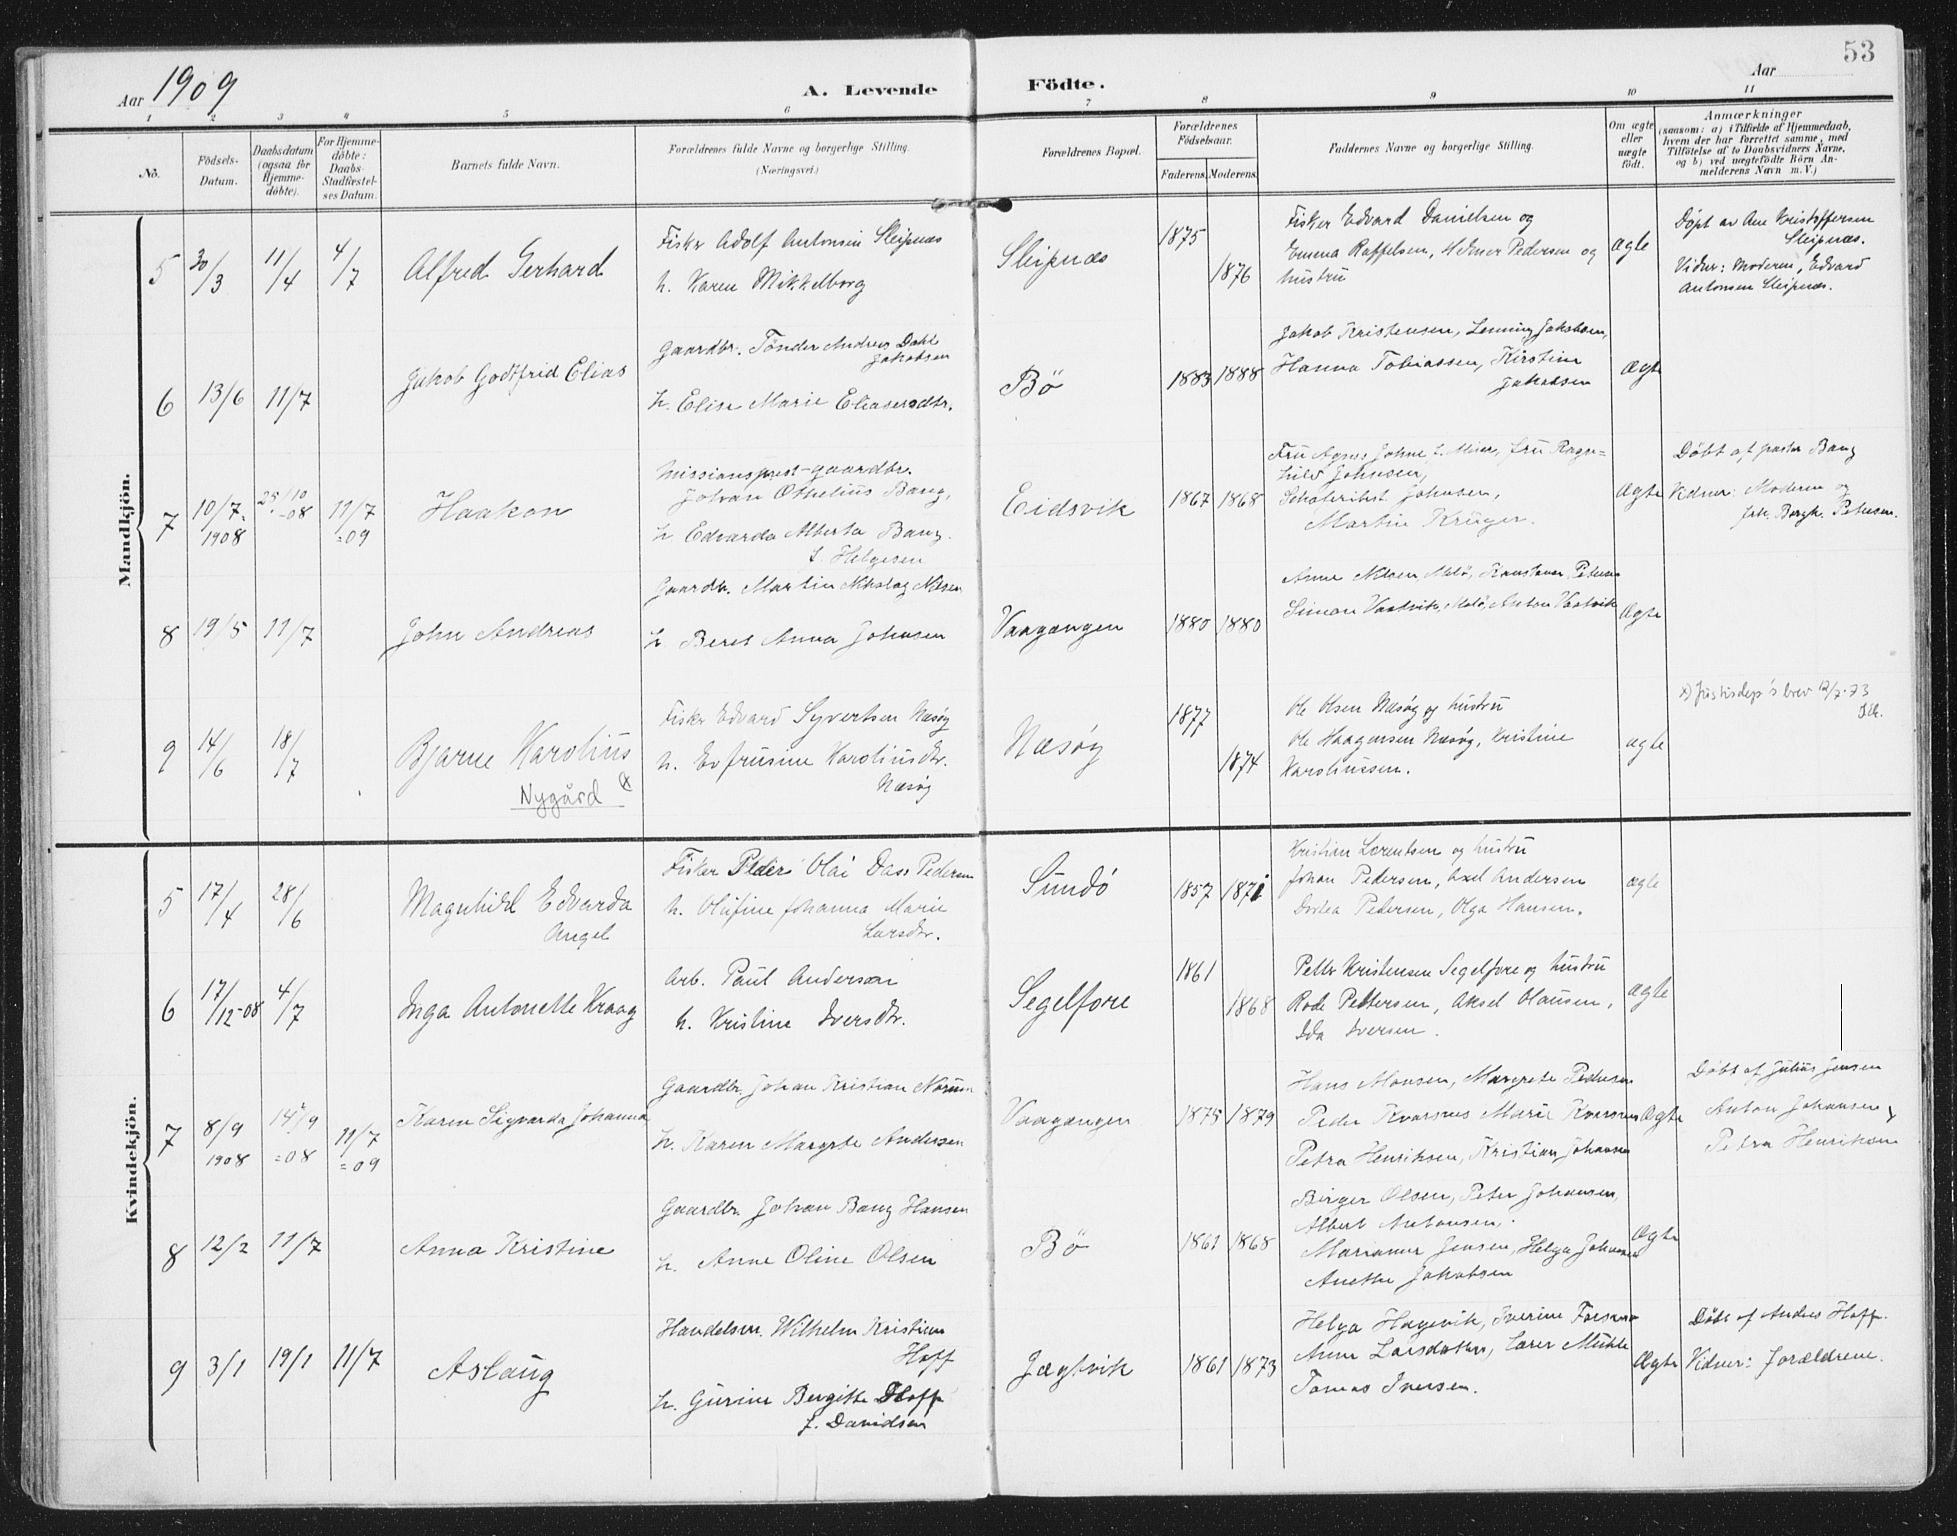 53
Aar 1909
A. Levende Födte.
Aar
1 2 3 4 5 6 7 8 9 10 11
No.
Födsels-Datum.
Daabsdatum (ogsaa for Hjemme-döbte).
For Hjemme-döbte: Daabs-Stadfæstel-ses Datum.
Barnets fulde Navn.
Forældrenes fulde Navne og borgerlige Stilling.
(Næringsvei.)
Forældrenes Bopæl.
Forældrenes Födselsaar.
Faderens. Moderens.
Faddernes Navne og borgerlige Stilling.
Om ægte eller uægte födt.
Anmærkninger
(saasom: a) i Tilfælde af Hjemmedaab,
hvem der har forrettet samme, med
Tilföielse af to Daabsvidners Navne,
og b) ved uægtefödte Börn An-
melderens Navn m. V.)
Mandkjön.
5 30/3 11/4 4/7 Alfred Gerhard
Fisker Adolf Antonsen Sleipnæs
h. Karen Mikkelborg
Sleipnæs 1875 1876
Fisker Edvard Danielsen og
Emma Raffelsen, Pedersen og
hustru
ægte
Døpt av Ane Kristoffersen
Sleipnæs.
Vidner: Moderen, Edvard
Antonsen Sleipnæs.
6 13/6 11/7 Jakob Godtfrid Elias
Gaardbr. Tönder Andreas Dahl
Jakobsen
h. Elise Marie Eliasersdtr.
Bö 1883 1888
Jakob Kristensen, Jakobsen,
Hanna Tobiassen, Kirstine
Jakobsen
Ægte
7 10/7-1908 25/10-08 11/7=09 Haakon
Missionsprest-gaardbr.
Johan Othelius Bang,
h. Edvarda Alberta Bang
f. Helgesen
Eidsvik 1867 1868
Fru Agnes Johne f. Fru Ragn=
hild Johnsen,
Johnsen,
Martin Krüger.
Ægte
Döbt af pastor Bang
Vidner: Moderen og
Petersen.
8 19/5 11/7 John Andreas
Gaardbr. Martin Nikolay Nilsen
h. Beret Anna Johnsen
Vaagangen 1880 1880
Anne Nilsen Melö, Petersen
Simon Vaatvik, Melö, Anton Vaatvik
Ægte
9 14/6 18/7 Bjarne Karolius
Nygård x)
Fisker Edvard Syvertsen Næsöy
h. Evfrusine Karoliusdtr.
Næsöy
Næsöy 1877 1874
Ole Olsen Næsöy og hustru
Ole Haagensen Næsöy, Kristine
Karoliussen.
ægte
x) Justisdep's brev 12/7-73
Kvindekjön.
5 17/4 28/6 Magnhild Edvarda
Angel
Fisker Peder Olai Dass Pedersen
h. Olufine Johanna Marie
Larsdtr.
Sundö 1857 1871
Kristian Lorentsen og hustru
Johan Pedersen, Axel Andersen
Dortea Pedersen, Olga Hansen.
ægte
6 17/12-08 4/7 Inga Antonette Kraag
Arb. Paul Andersen
h. Kristine Iversdtr.
Segelfore 1861 1868
Petter Kristensen Segelfore og hustru
Pettersen, Aksel Olausen,
Ida Iversen.
ægte
7 8/9 1908 14/9=08 11/7=09 Karen Sigvarda Johanna
Gaardbr. Johan Kristian Norum
h. Karen Margrete Andersen
Vaagangen 1875 1879
Hans Monsen, Margrete Pedersen
Peder Kvarsnes Marie Kvarsnes
Petra Henriksen, Kristian Johansen
Ægte
Döbt af Julius Jensen
Anton Johansen,
Petra Henriksen
8 12/2 11/7 Anna Kristine
Gaardbr. Johan Bang Hansen
h. Anne Oline Olsen
Bö 1861 1868
Birger Olsen, Peter Johansen,
Albert Antonsen,
Jensen, Helga Johansen
Anette Jakobsen
Ægte
9 3/1 19/1 11/7 Aslaug
Handelsm. Wilhelm Kristian
Hoff
h. Gurine Bergitte Hoff
f. Davidsen
Jægtvik 1861 1873
Helga Hagevik, Iverine
Anne Larsdatter,
Tomas Iversen.
Ægte
Döbt af Anders Hoff.
Vidner: Forældrene.